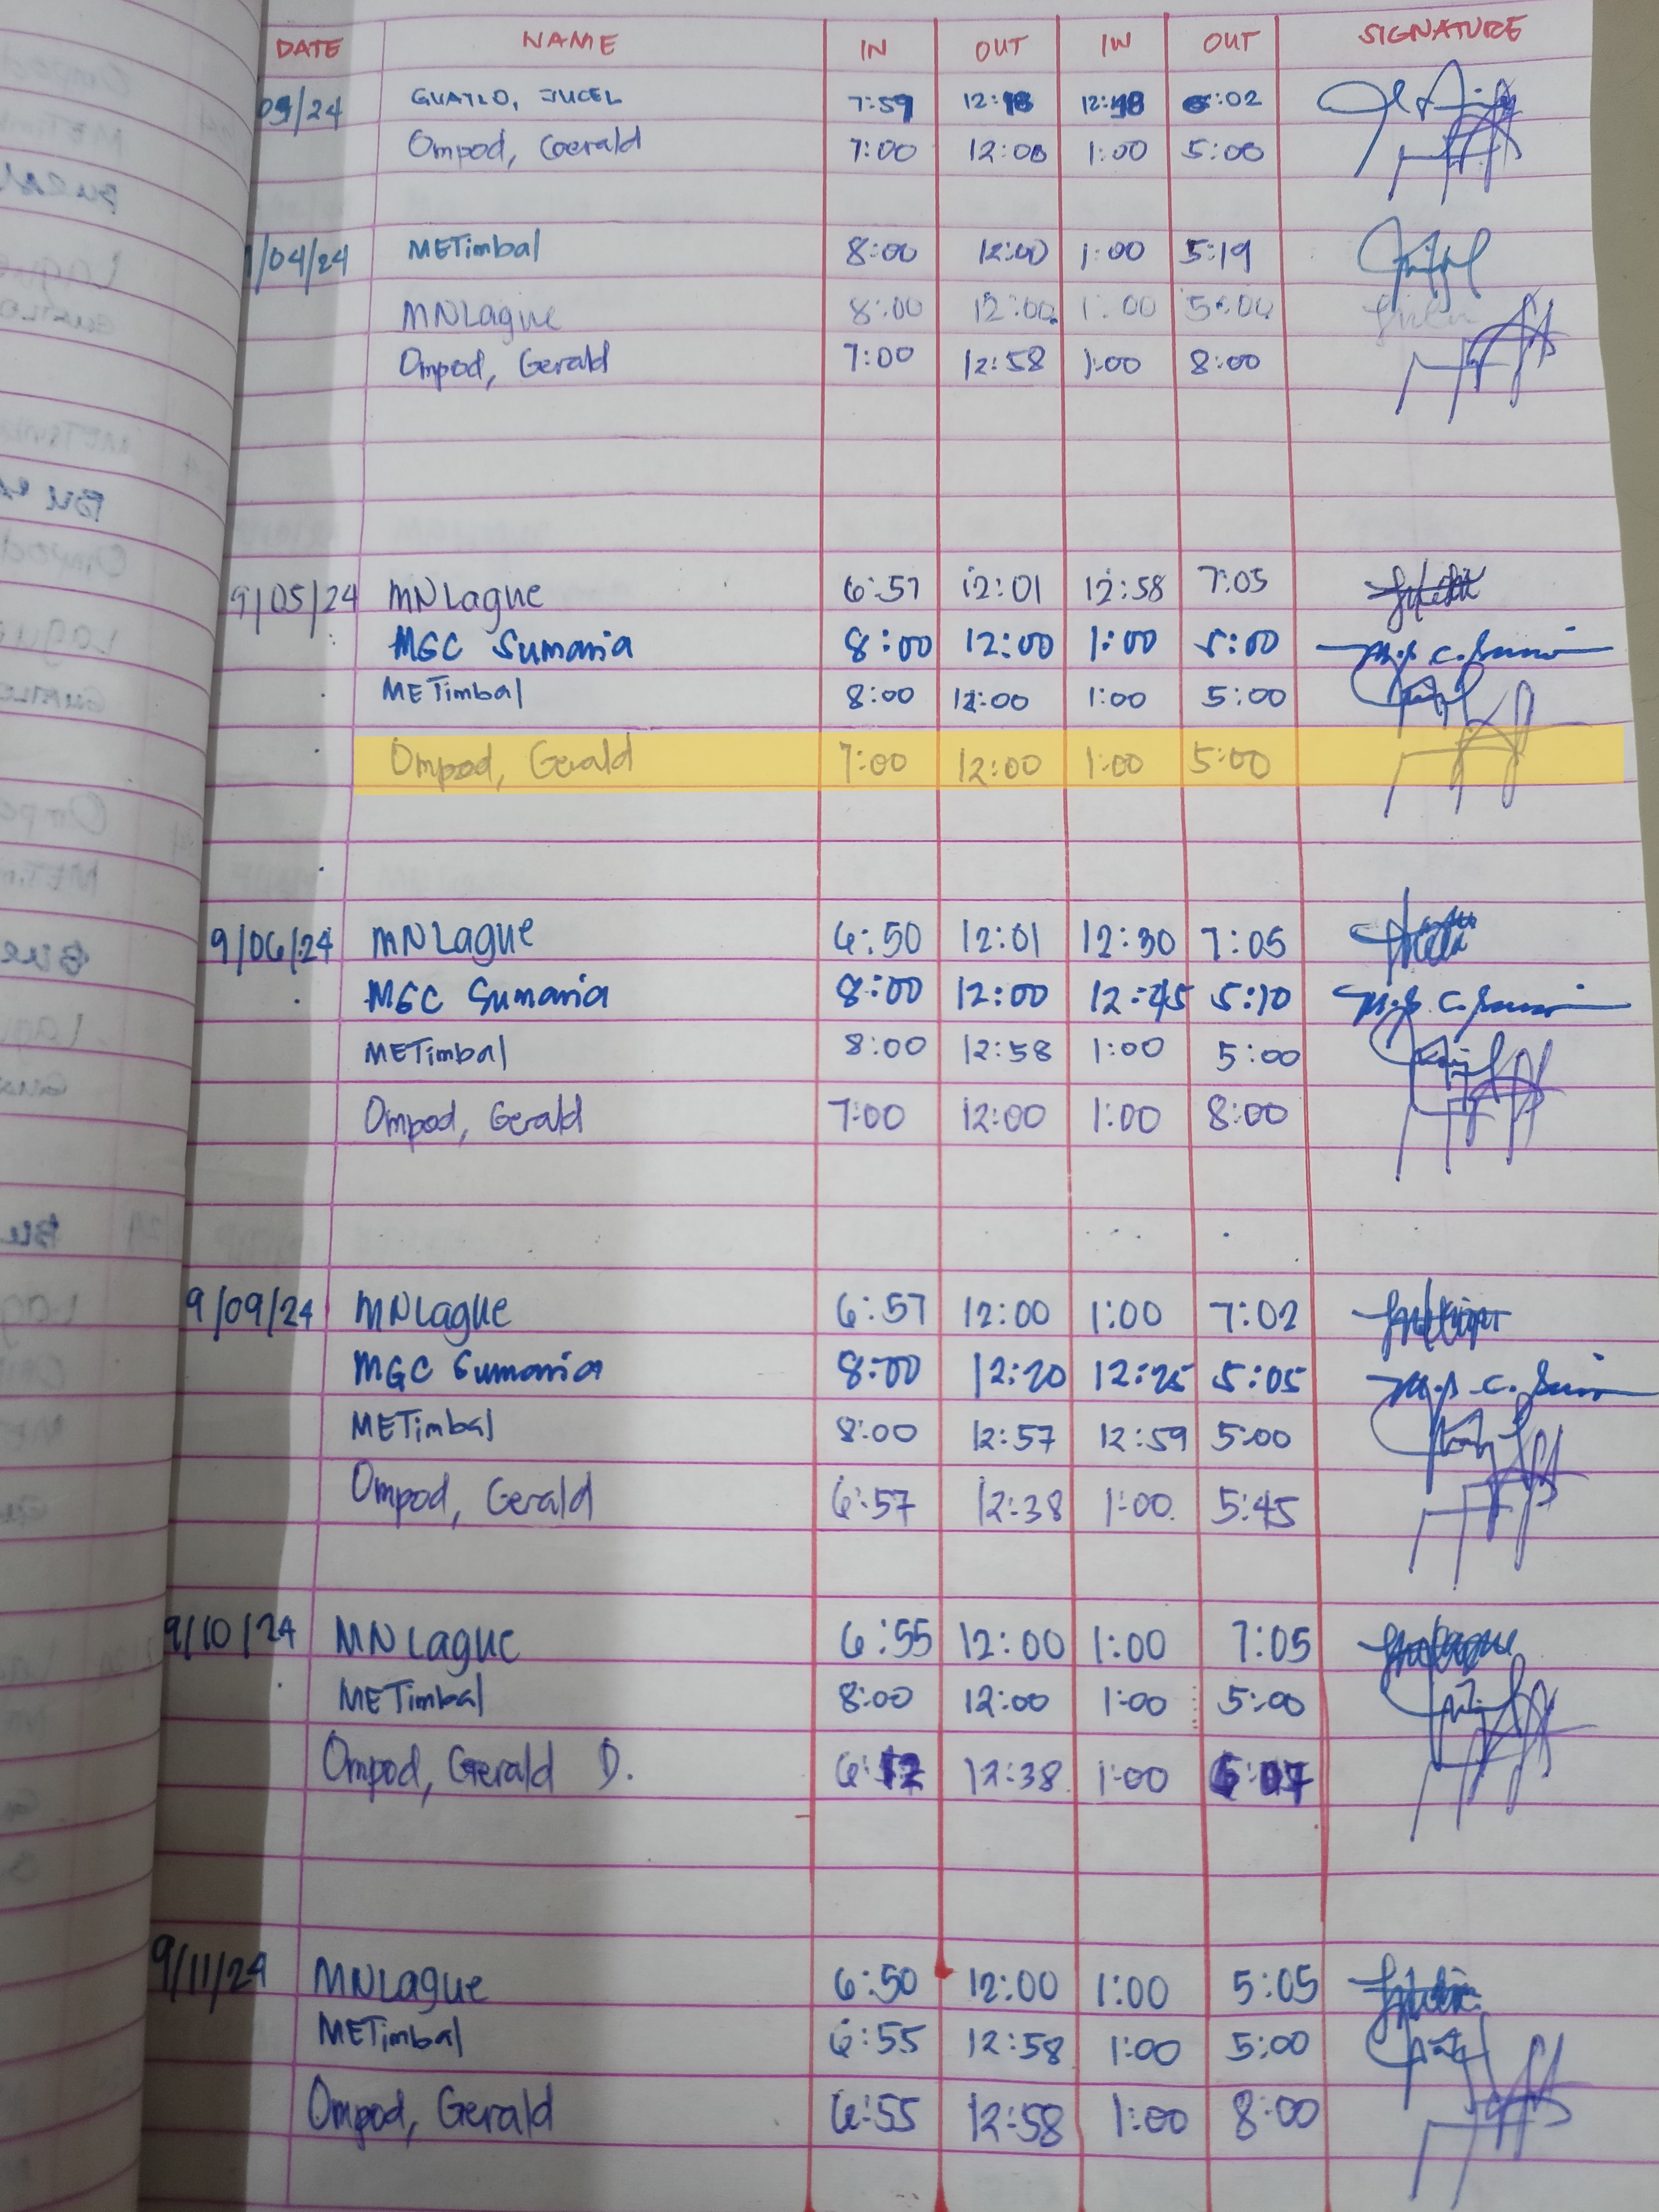 DATE NAME IN OUT IN OUT SIGNATURE
/24 GUATLO, JUCEL 7:59 :02
Ompod, Gerald 7:00 12:00 1:00 5:00
/04/24 METimbal 8:00 12:00 1:00 5:19
MNLague 8:00 12:00 1:00 5:00
Ompod, Gerald 7:00 12:58 1:00 8:00
9/05/24 MNLague 6:57 12:01 12:58 7:05
MGC Sumaria 8:00 12:00 1:00 5:00
METimbal 8:00 12:00 1:00 5:00
Ompod, Gerald 7:00 12:00 1:00 5:00
9/06/24 MNLague 6:50 12:01 12:30 7:05
MGC Sumaria 8:00 12:00 12:45 5:10
METimbal 8:00 12:58 1:00 5:00
Ompod, Gerald 7:00 12:00 1:00 8:00
9/09/24 MNLague 6:57 12:00 1:00 7:02
MGC Sumaria 8:00 12:20 12:25 5:05
METimbal 8:00 12:57 12:59 5:00
Ompod, Gerald 6:57 12:38 1:00 5:45
9/10/24 MNLague 6:55 12:00 1:00 7:05
METimbal 8:00 12:00 1:00 5:00
Ompod, Gerald D. 12:38 1:00
9/11/24 MNLague 6:50 12:00 1:00 5:05
METimbal 6:55 12:58 1:00 5:00
Ompod, Gerald 6:55 12:58 1:00 8:00